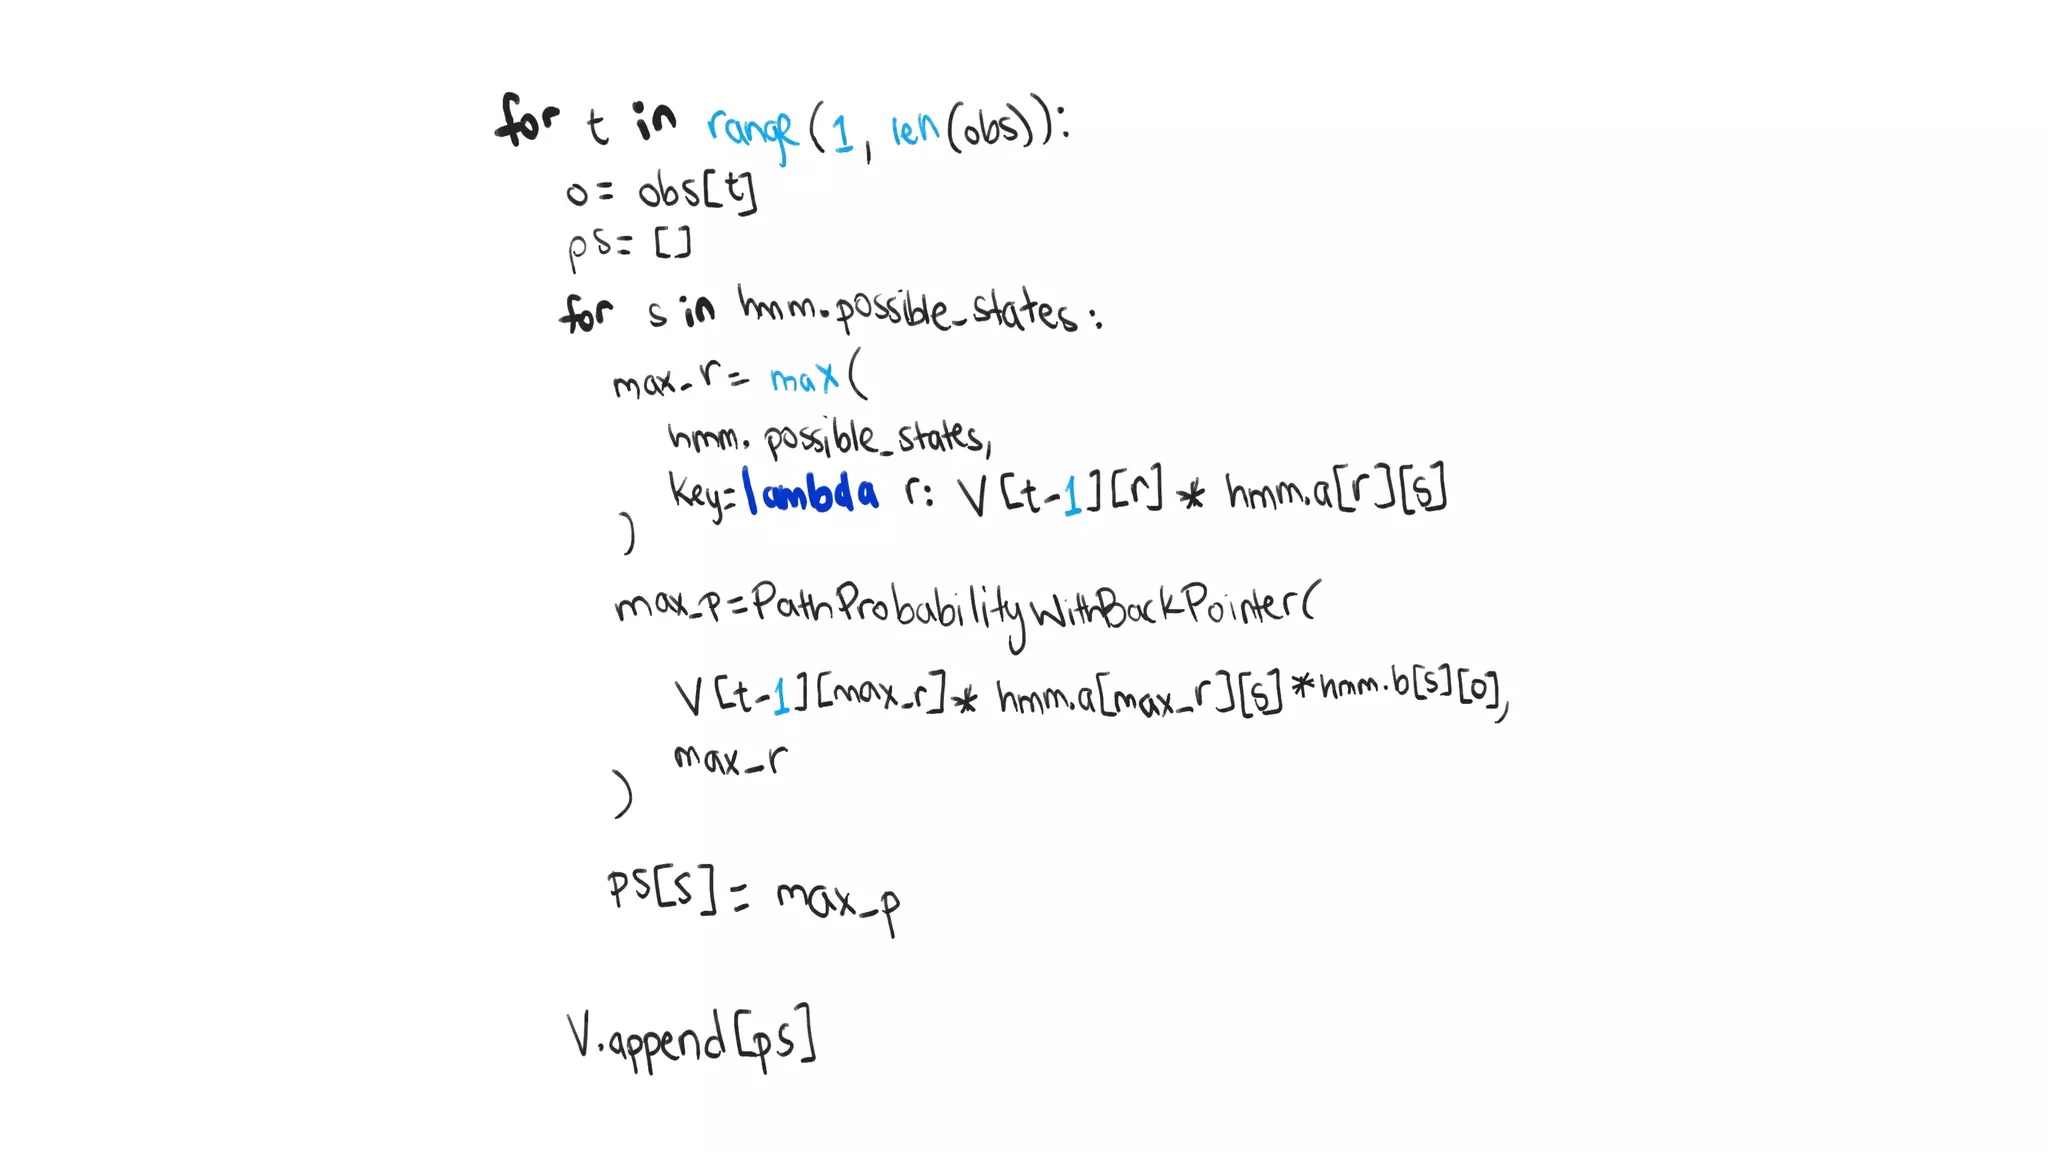 for t in range(1, len(obs)):
o = obs[t]
ps = []
for s in hmm.possible_states:
max_r = max(
hmm.possible_states,
key=lambda r: V[t-1][r] * hmm.a[r][s]
)
max_p = PathProbabilityWithBackPointer(
V[t-1][max_r] * hmm.a[max_r][s] * hmm.b[s][o],
max_r
)
ps[s] = max_p
V.append[ps]